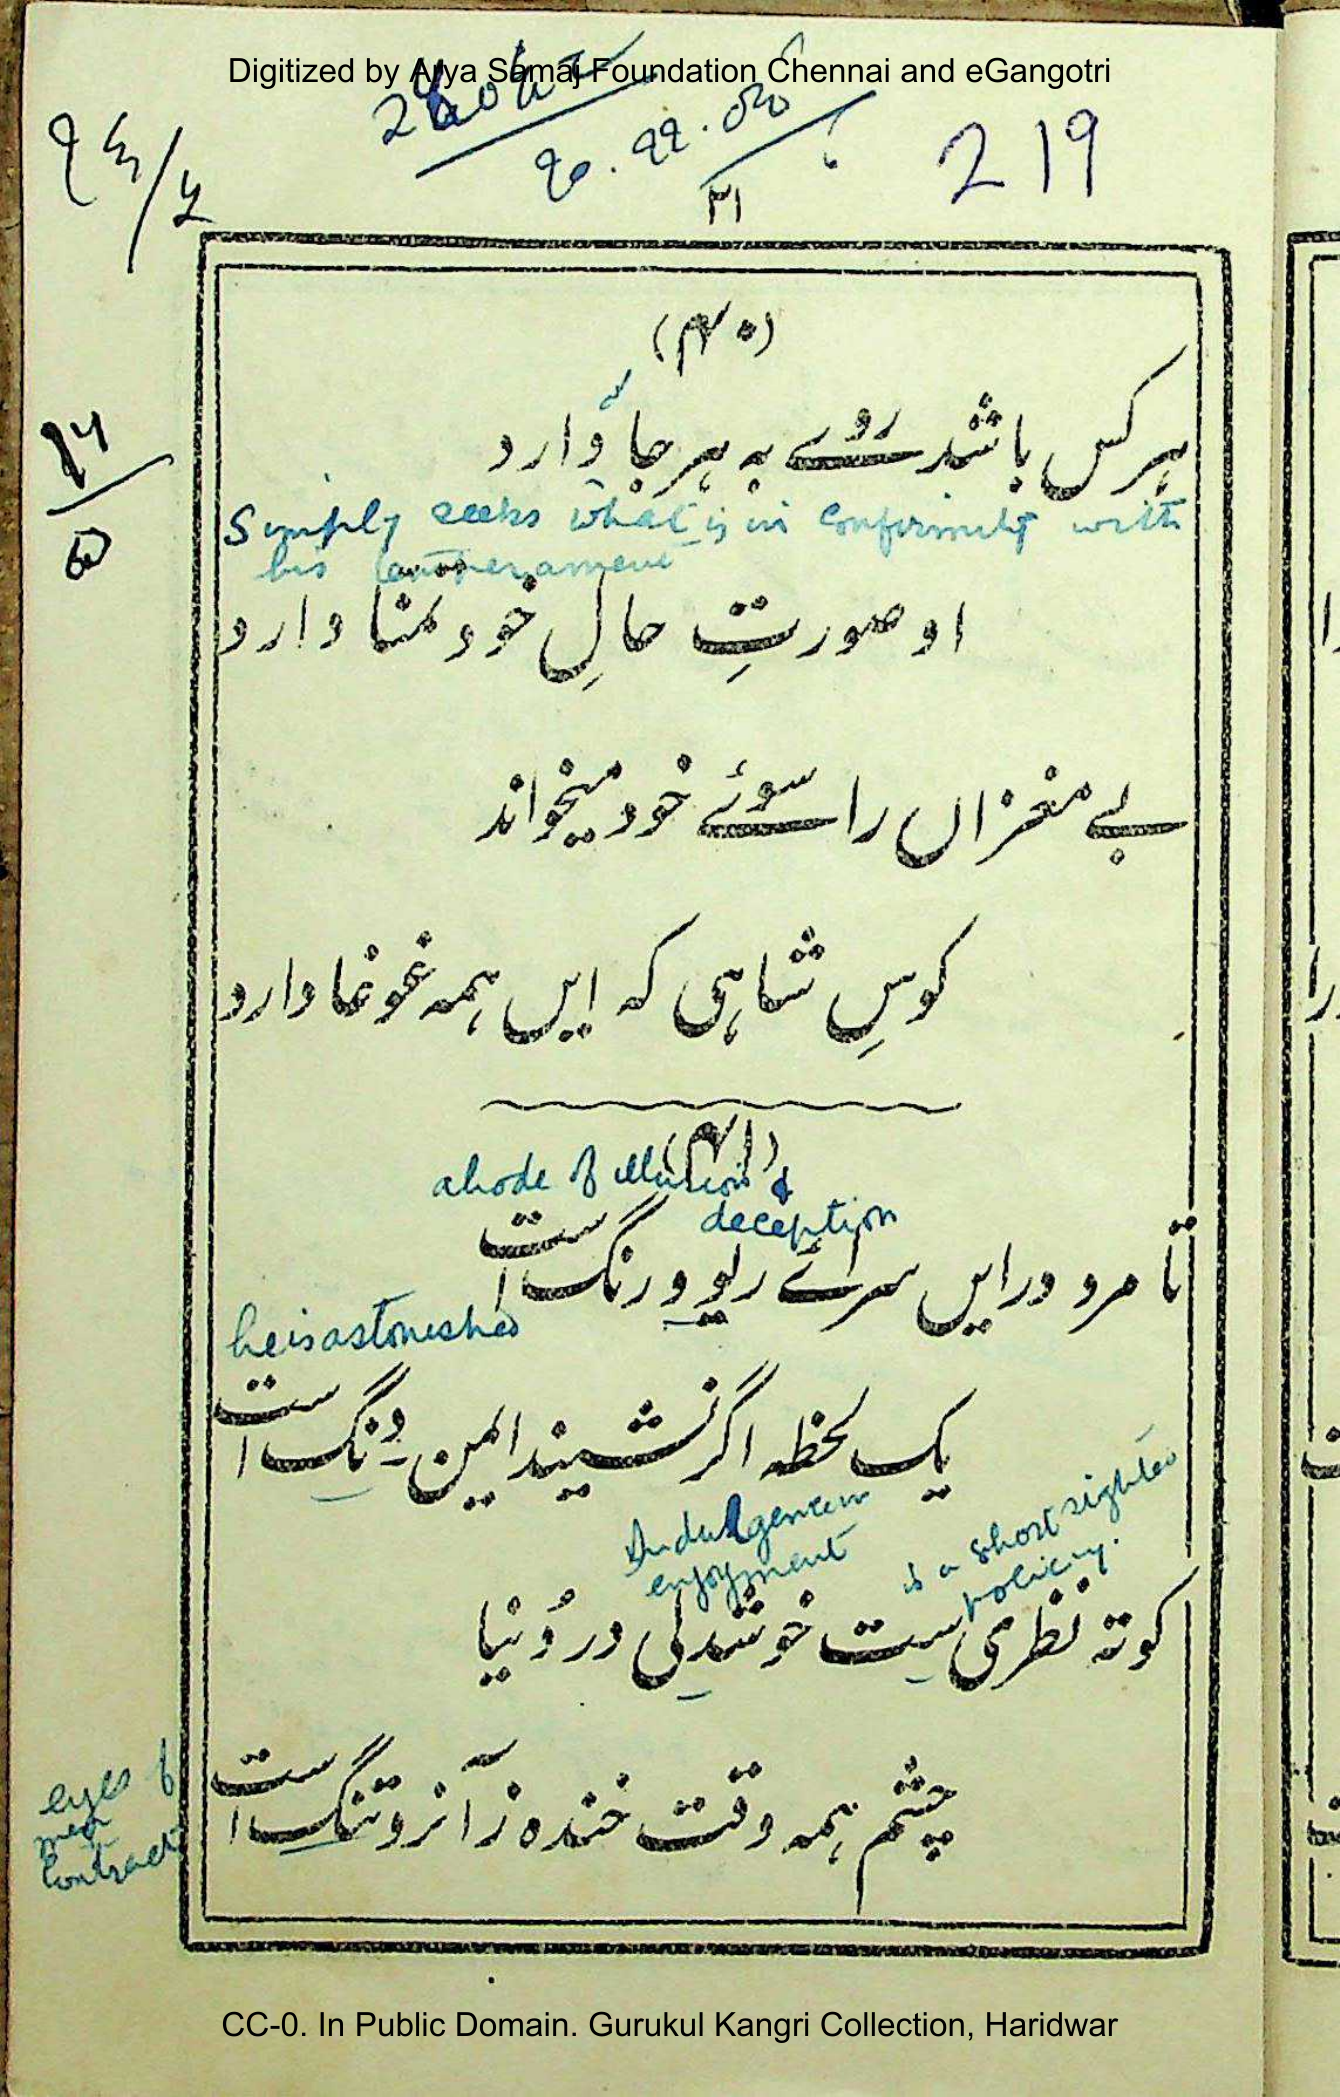 Digitized by Arya Samaj Foundation Chennai and eGangotri
219
۳۱
(۴۰)
ہر کس باشد رُوے بہ ہر جا وَا رد
Simply seeks what is in conformity with
his temperament
او صورتِ حالِ خود تمنا دارد
بے مغزاں را سوئے خود میخواند
کوسِ شاہی کہ ایں ہمہ غوغا دارد
(۴۱)
abode of illusion &
deception
تا مرد درایں سرائے ریو ورنگ است
he is astonished
یک لحظہ اگر نشیند ایمن دنگ است
Indulgence in
enjoyment
is a short sighted
policy.
کوتہ نظری ست خوشدلی در دُنیا
چشم ہمہ وقت خندہ زآنرو تنگ است
eyes of
men
contract
CC-0. In Public Domain. Gurukul Kangri Collection, Haridwar